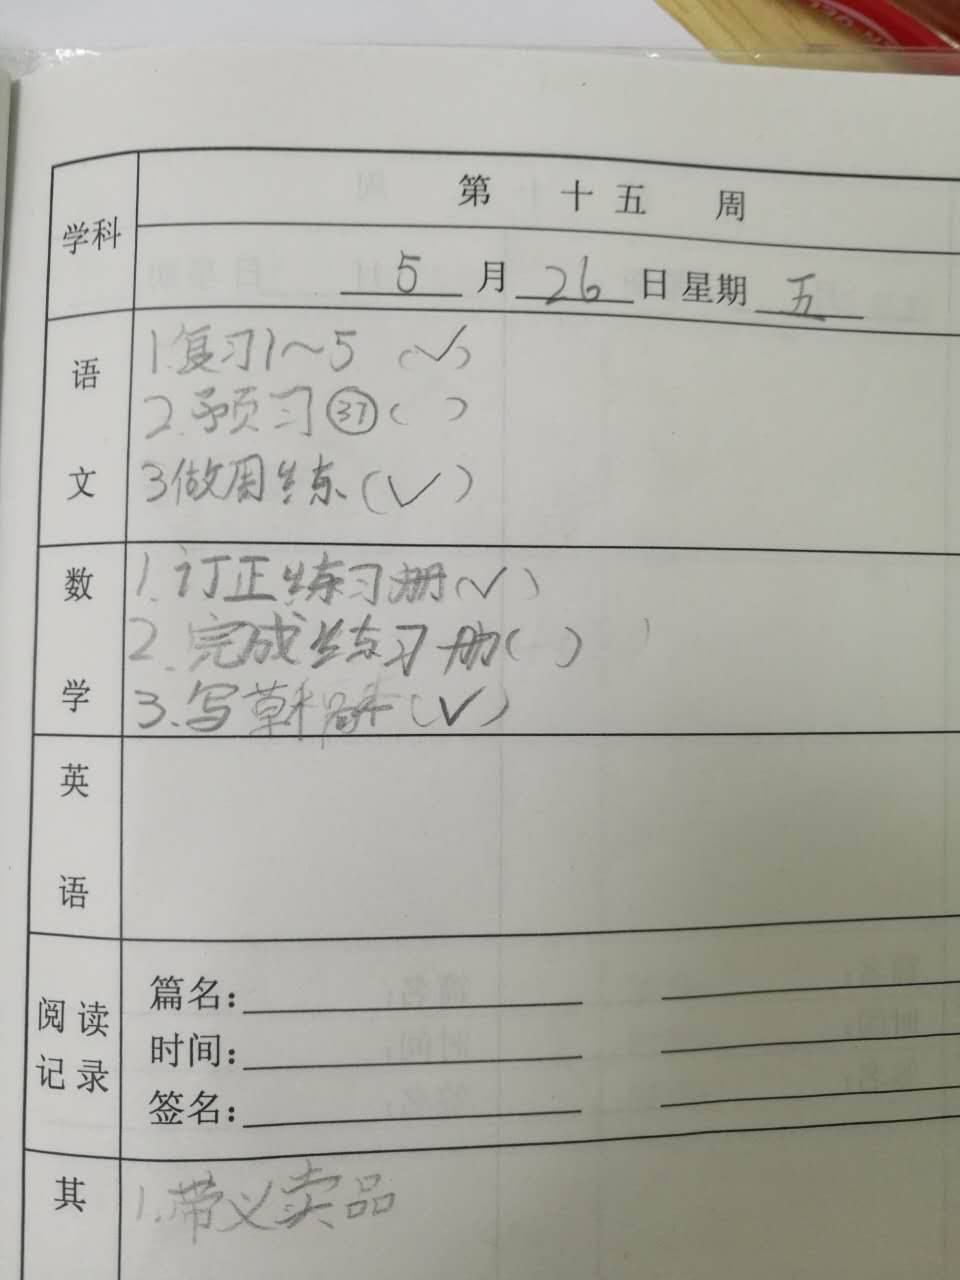 学科
第 十五 周
5月26日星期五
语文
1.复习1~5 (✓)
2.予页习㊲( )
3做周练(✓)
数学
1.订正练习册(✓)
2.完成练习册( )
3.写草稿(✓)
英语
阅读记录
篇名:
时间:
签名:
其
1.带义卖品